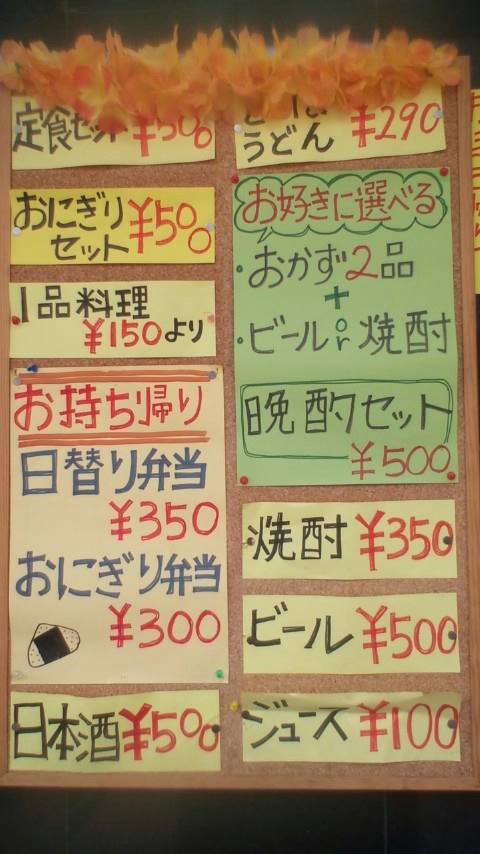 定食セット ¥500
おにぎり
セット ¥500
1品料理
¥150より
お持ち帰り
日替り弁当
¥350
おにぎり弁当
¥300
日本酒 ¥500
うどん ¥290
お好きに選べる
おかず2品
+
ビール or 焼酎
晩酌セット
¥500
焼酎 ¥350
ビール ¥500
ジュース ¥100